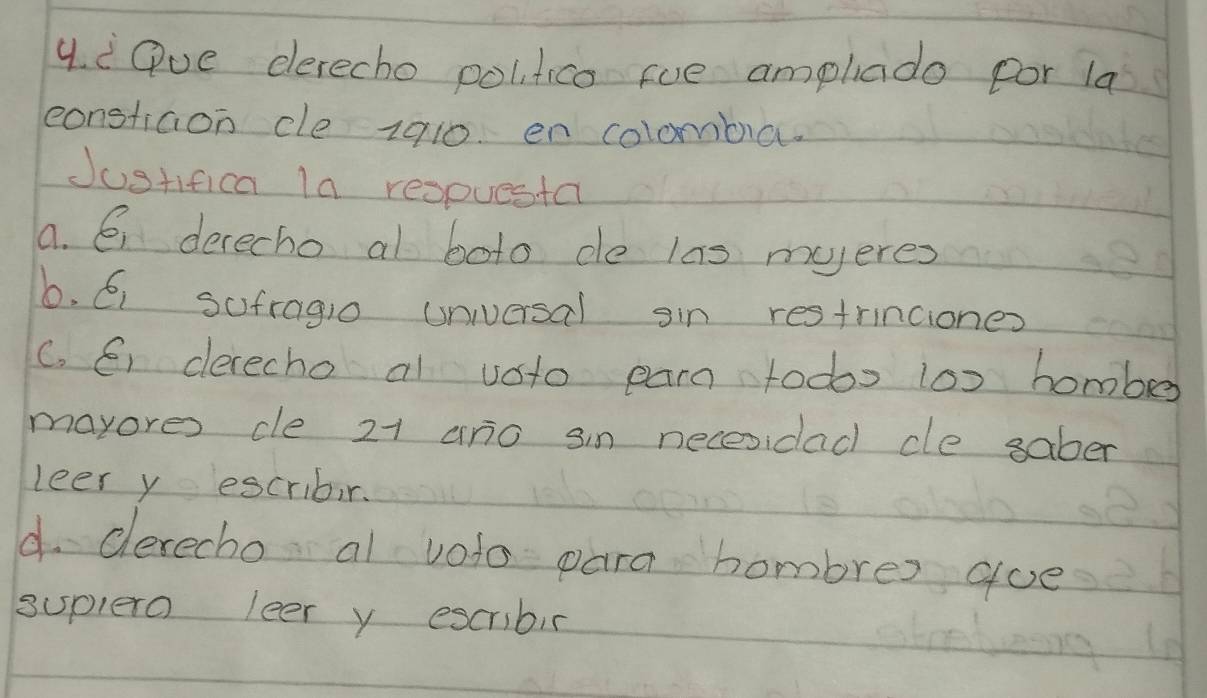 4. ¿Que derecho politico fue ampliado por la
constiaon de 1910. en colombia.
Justifica la respuesta
a. El derecho al boto de las mujeres
b. El sufragio universal sin restrinciones
c. El derecho al voto para todos los hombres
mayores de 21 año sin necesidad de saber
leer y escribir.
d. derecho al voto para hombres que
supiera leer y escribir